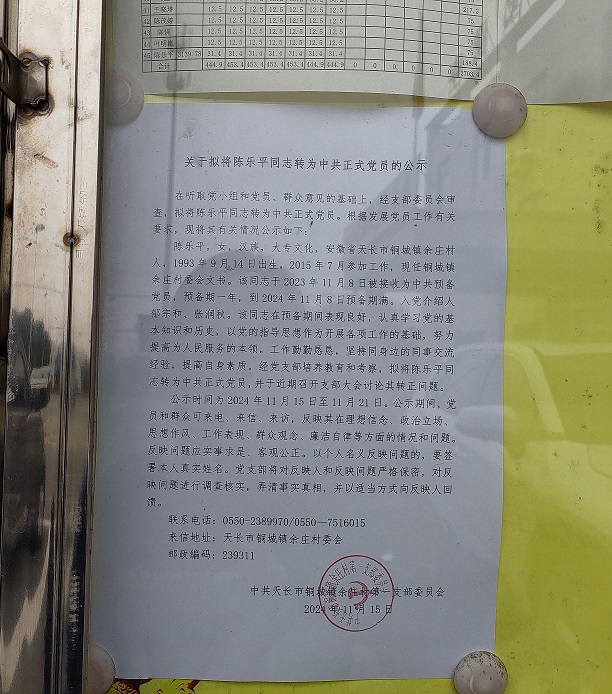 41 王晓琳 12.5 12.5 12.5 12.5 12.5 12.5 217.2
42 陈茂婷 12.5 12.5 12.5 12.5 12.5 12.5 75
43 12.5 12.5 12.5 12.5 12.5 12.5 75
44 12.5 12.5 12.5 12.5 12.5 12.5 75
45 陈乐平 31.4 31.4 31.4 31.4 31.4 31.4 188.4
合计 444.9 453.4 453.4 453.4 444.9 444.9 0 0 0 0 0 2703.4
关于拟将陈乐平同志转为中共正式党员的公示
在听取党小组和党员、群众意见的基础上，经支部委员会审
查，拟将陈乐平同志转为中共正式党员。根据发展党员工作有关
要求，现将其有关情况公示如下：
陈乐平，女，汉族，大专文化，安徽省天长市铜城镇余庄村
人，1993年9月14日出生，2015年7月参加工作，现任铜城镇
余庄村委会文书。该同志于2023年11月8日被接收为中共预备
党员，预备期一年，到2024年11月8日预备期满。入党介绍人
郁宗和、张润秋。该同志在预备期间表现良好，认真学习党的基
本知识和历史，以党的指导思想作为开展各项工作的基础，努力
提高为人民服务的本领。工作勤勤恳恳，坚持同身边的同事交流
经验，提高自身素质。经党支部培养教育和考察，拟将陈乐平同
志转为中共正式党员，并于近期召开支部大会讨论其转正问题。
公示时间为2024年11月15日至11月21日。公示期间，党
员和群众可来电、来信、来访，反映其在理想信念、政治立场、
思想作风、工作表现、群众观念、廉洁自律等方面的情况和问题。
反映问题应实事求是、客观公正。以个人名义反映问题的，要签
署本人真实姓名。党支部将对反映人和反映问题严格保密，对反
映问题进行调查核实，弄清事实真相，并以适当方式向反映人回
馈。
联系电话：0550-2389970/0550—7516015
来信地址：天长市铜城镇余庄村委会
邮政编码：239311
中共天长市铜城镇余庄村第一支部委员会
2024年11月15日